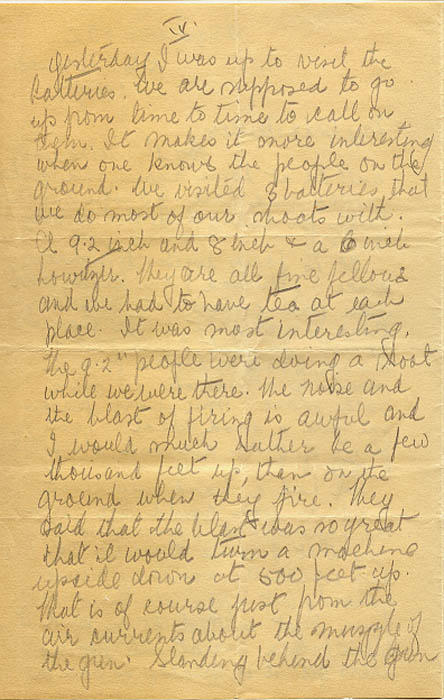 IV.
Yesterday I was up to visit the
batteries. We are supposed to go
up from time to time to call on
them. It makes it more interesting
when one knows the people on the
ground. We visited 3 batteries that
we do most of our shoots with.
A 9.2 inch and 8 inch & a 6 inch
howitzer. They are all fine fellows
and we had to have tea at each
place. It was most interesting.
The 9.2" people were doing a shoot
while we were there. The noise and
the blast of firing is awful and
I would much rather be a few
thousand feet up, than on the
ground when they fire. They
said that the blast was so great
that it would turn a machine
upside down at 500 feet up.
That is of course just from the
air currents about the muzzle of
the gun. Standing behind the gun